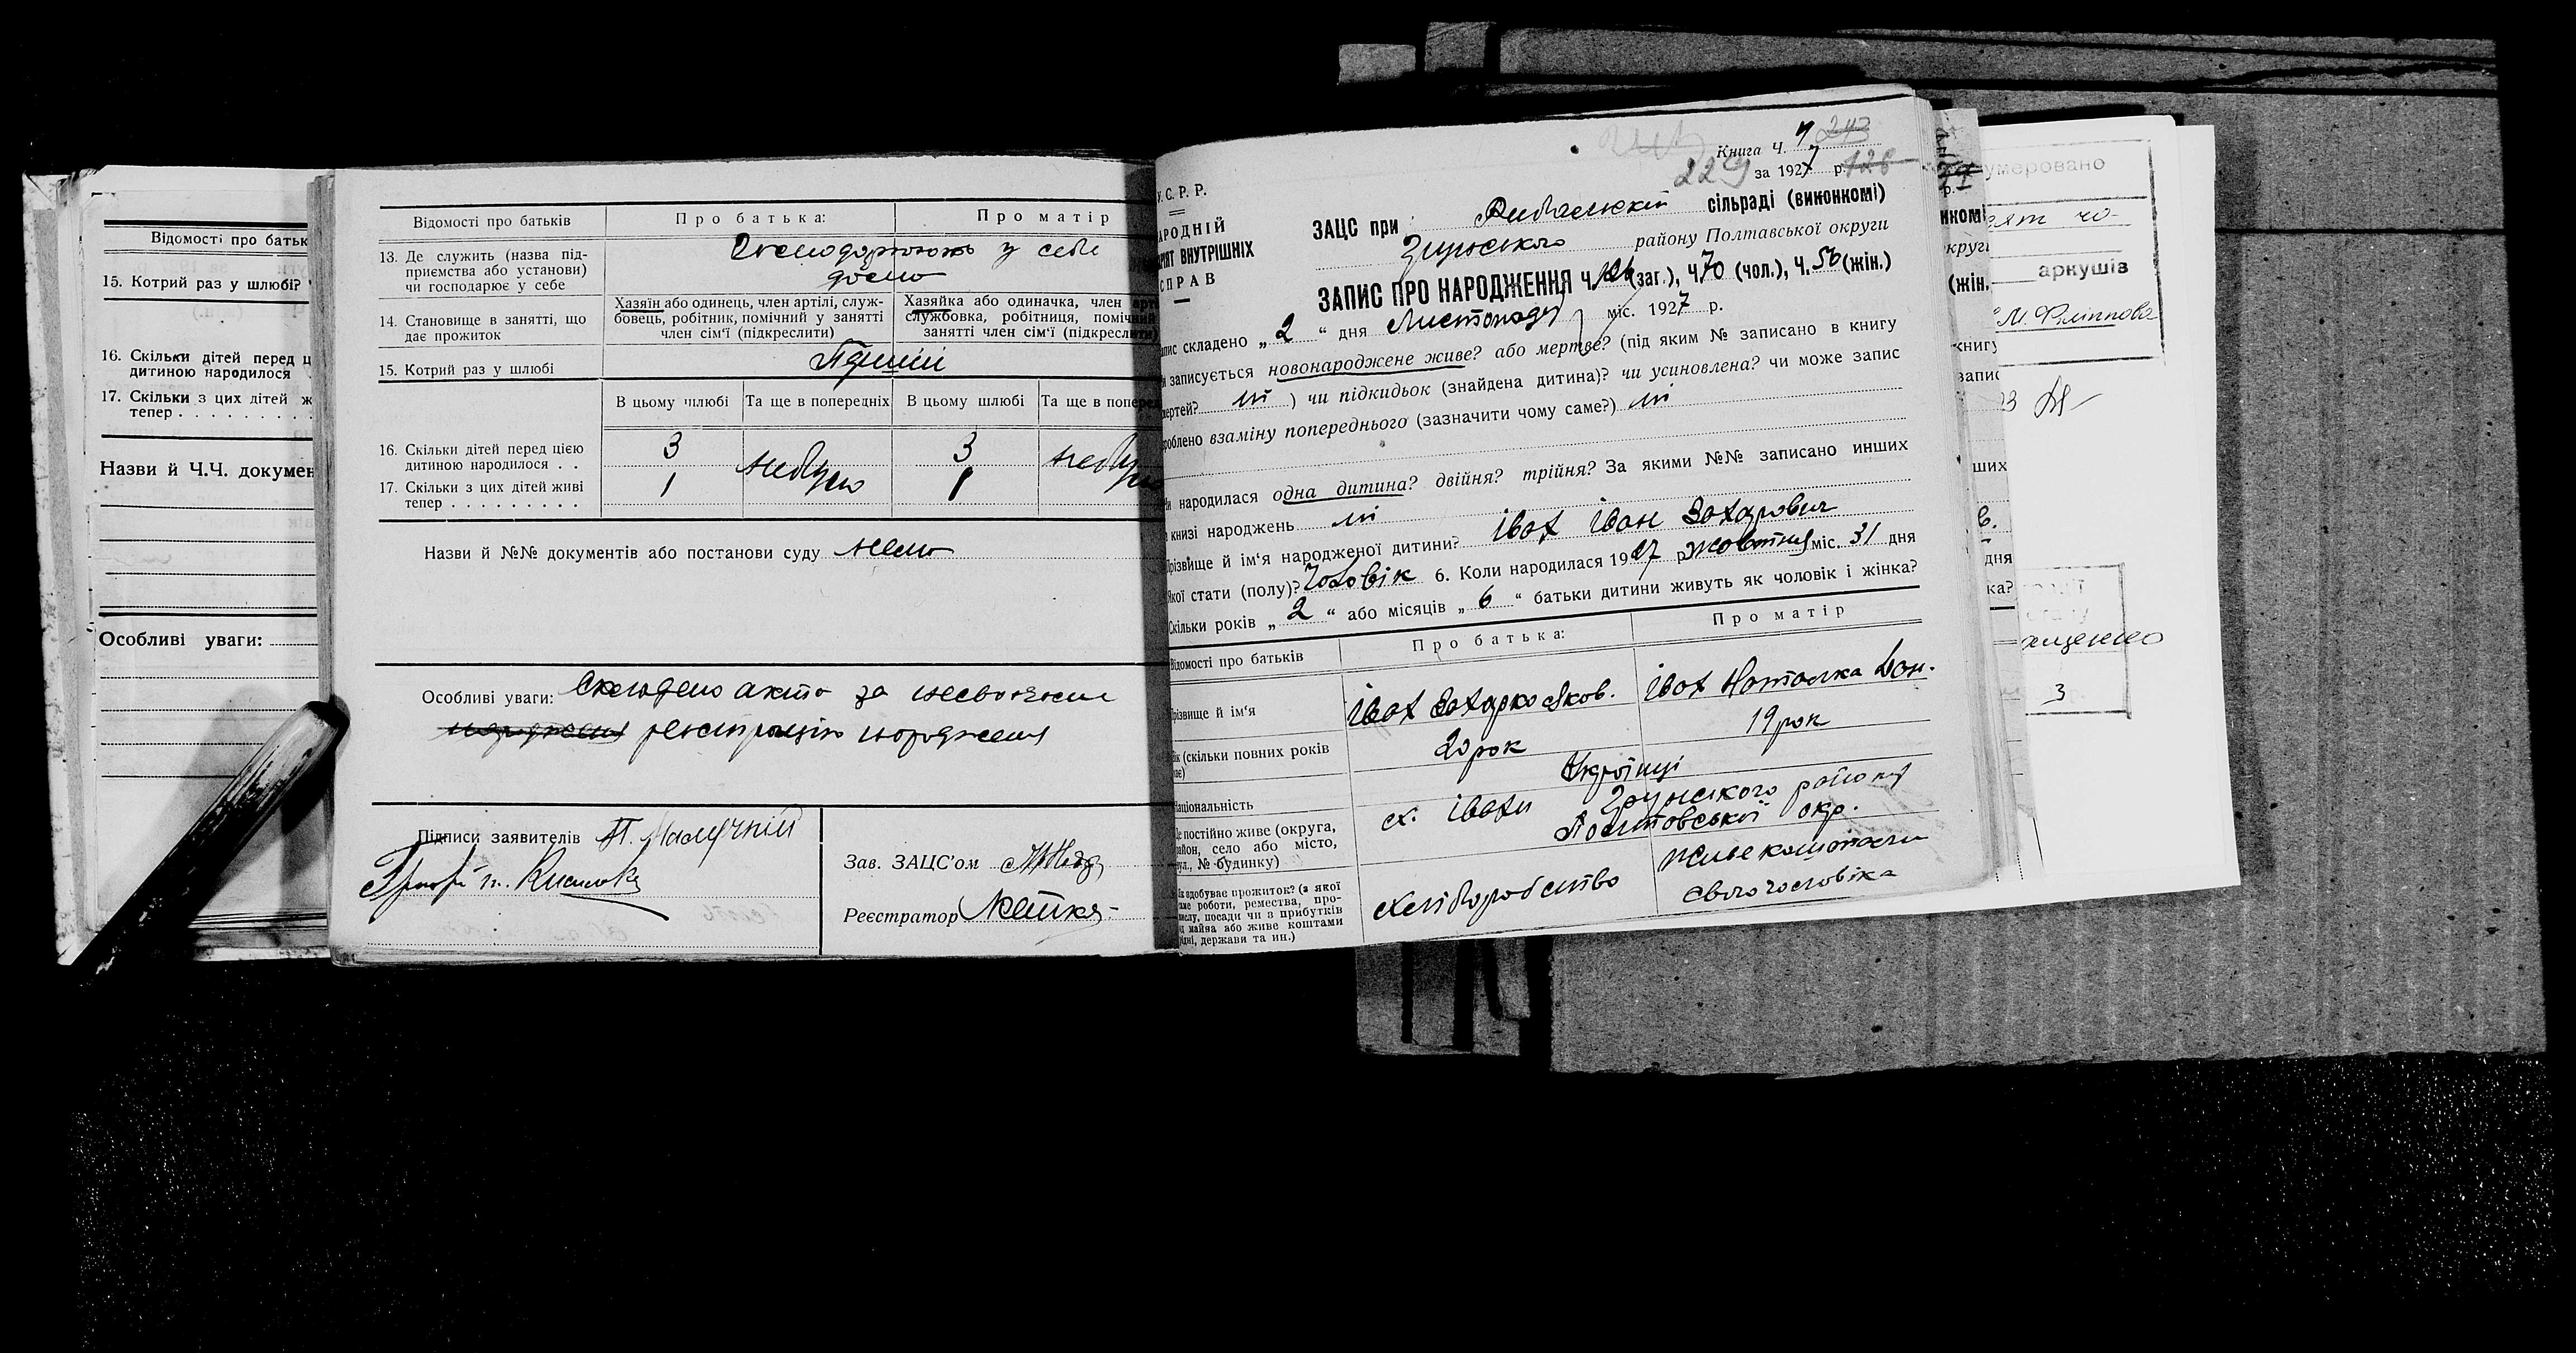 Відомості про батьк
15. Котрий раз у шлюбі?
16. Скільки дітей перед ц
дитиною народилося
17. Скільки з цих дітей ж
тепер
Назви й Ч.Ч. докумен
Особливі уваги:
Відомості про батьків
Про батька:
Про матір
13. Де служить (назва під-
приємства або установи)
чи господарює у себе
у себе
дома
14. Становище в занятті, що
дає прожиток
Хазяїн або одинець, член артілі, служ-
бовець, робітник, помічний у занятті
член сім'ї (підкреслити)
Хазяйка або одиначка, член арті
службовка, робітниця, помічний
занятті член сім'ї (підкреслити)
15. Котрий раз у шлюбі
В цьому шлюбі Та ще в попередніх В цьому шлюбі Та ще в поперед
16. Скільки дітей перед цією
дитиною народилося . .
3 3
17. Скільки з цих дітей живі
тепер . . . . . . . . .
1 небуло 1
Назви й №№ документів або постанови суду нема
Особливі уваги: Складено акта за несвоєчасне
реєстрацію народження
Підписи заявителів
Зав. ЗАЦС'ом
Реєстратор
Книга Ч. 243
229 за 1927 р. 128
У.С.Р.Р.
АРОДНІЙ
АРІЯТ ВНУТРІШНІХ
СПРАВ
ЗАЦС при сільраді (виконкомі)
Грунського району Полтавської округи
ЗАПИС ПРО НАРОДЖЕННЯ Ч. 126 (заг.), Ч. 70 (чол.), Ч. 56 (жін.)
апис складено „ 2 “ дня Листопада міс. 1927 р.
и записується новонароджене живе? або мертве? (під яким № записано в книгу
мертей? ні ) чи підкидьок (знайдена дитина)? чи усиновлена? чи може запис
роблено взаміну попереднього (зазначити чому саме?) ні
и народилася одна дитина? двійня? трійня? За якими №№ записано инших
книзі народжень ні
Прізвище й ім'я народженої дитини? Івах Іван Захарович
Якої стати (полу)? Чоловік 6. Коли народилася 1927 р. жовтня міс. 31 дня
Скільки років „ 2 “ або місяців „ 6 “ батьки дитини живуть як чоловік і жінка?
Відомості про батьків
Про батька:
Про матір
Прізвище й ім'я
Івах Захарко Яков.
Івах Наталка
Вік (скільки повних років
має)
20 рок
19 рок
Національність
Українці
Де постійно живе (округа,
район, село або місто,
вул., № будинку)
х. Івахи Грунського району
Полтавської окр.
Як здобуває прожиток? (з якої
саме роботи, ремества, про-
мислу, посади чи з прибутків
від майна або живе коштами
рідні, держави та ин.)
хліборобство
живе коштами
свого чоловіка
р.
нкомі
округи
(жін.
книгу
запис
ших
дня
ка?
умеровано
аркушів
М. Філіппова
3